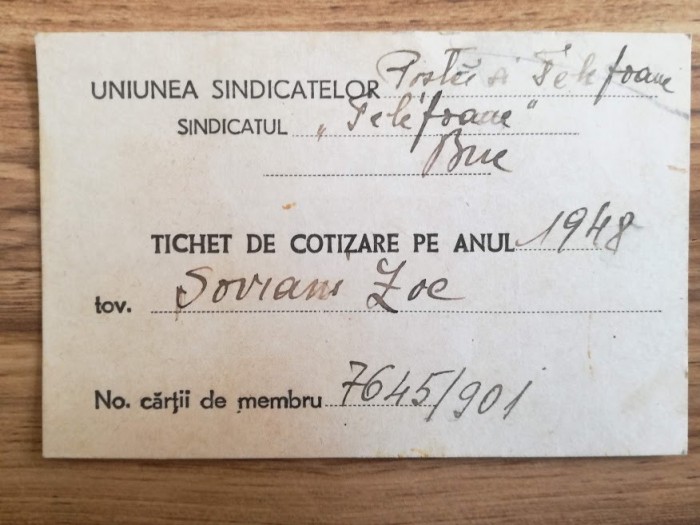 UNIUNEA SINDICATELOR Poștă și Telefoane
SINDICATUL „Telefoane"
Buc
TICHET DE COTIZARE PE ANUL 1948
tov. Zoe
No. cărții de membru 7645/901